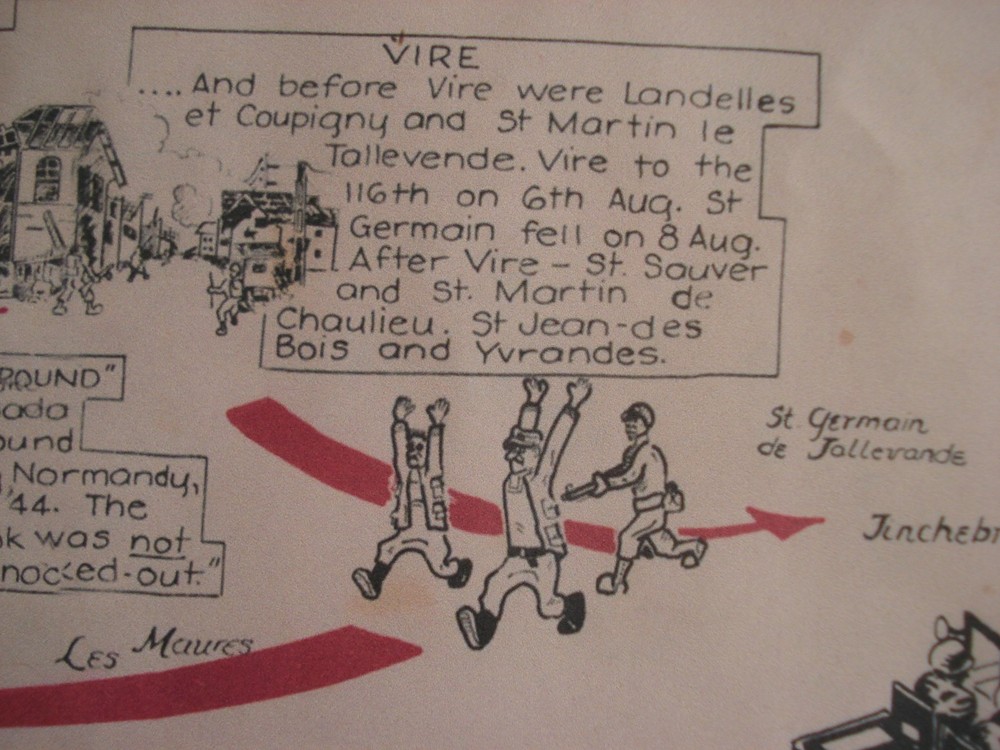 VIRE
....And before Vire were Landelles
et Coupigny and St Martin le
Tallevende. Vire to the
116th on 6th Aug. St
Germain fell on 8 Aug.
After Vire - St. Sauver
and St. Martin de
Chaulieu. St Jean-des
Bois and Yvrandes.
ROUND"
ada
ound
Normandy,
'44. The
k was not
nocked-out."
St. Germain
de Tallevande
Tinchebr
Les Maures